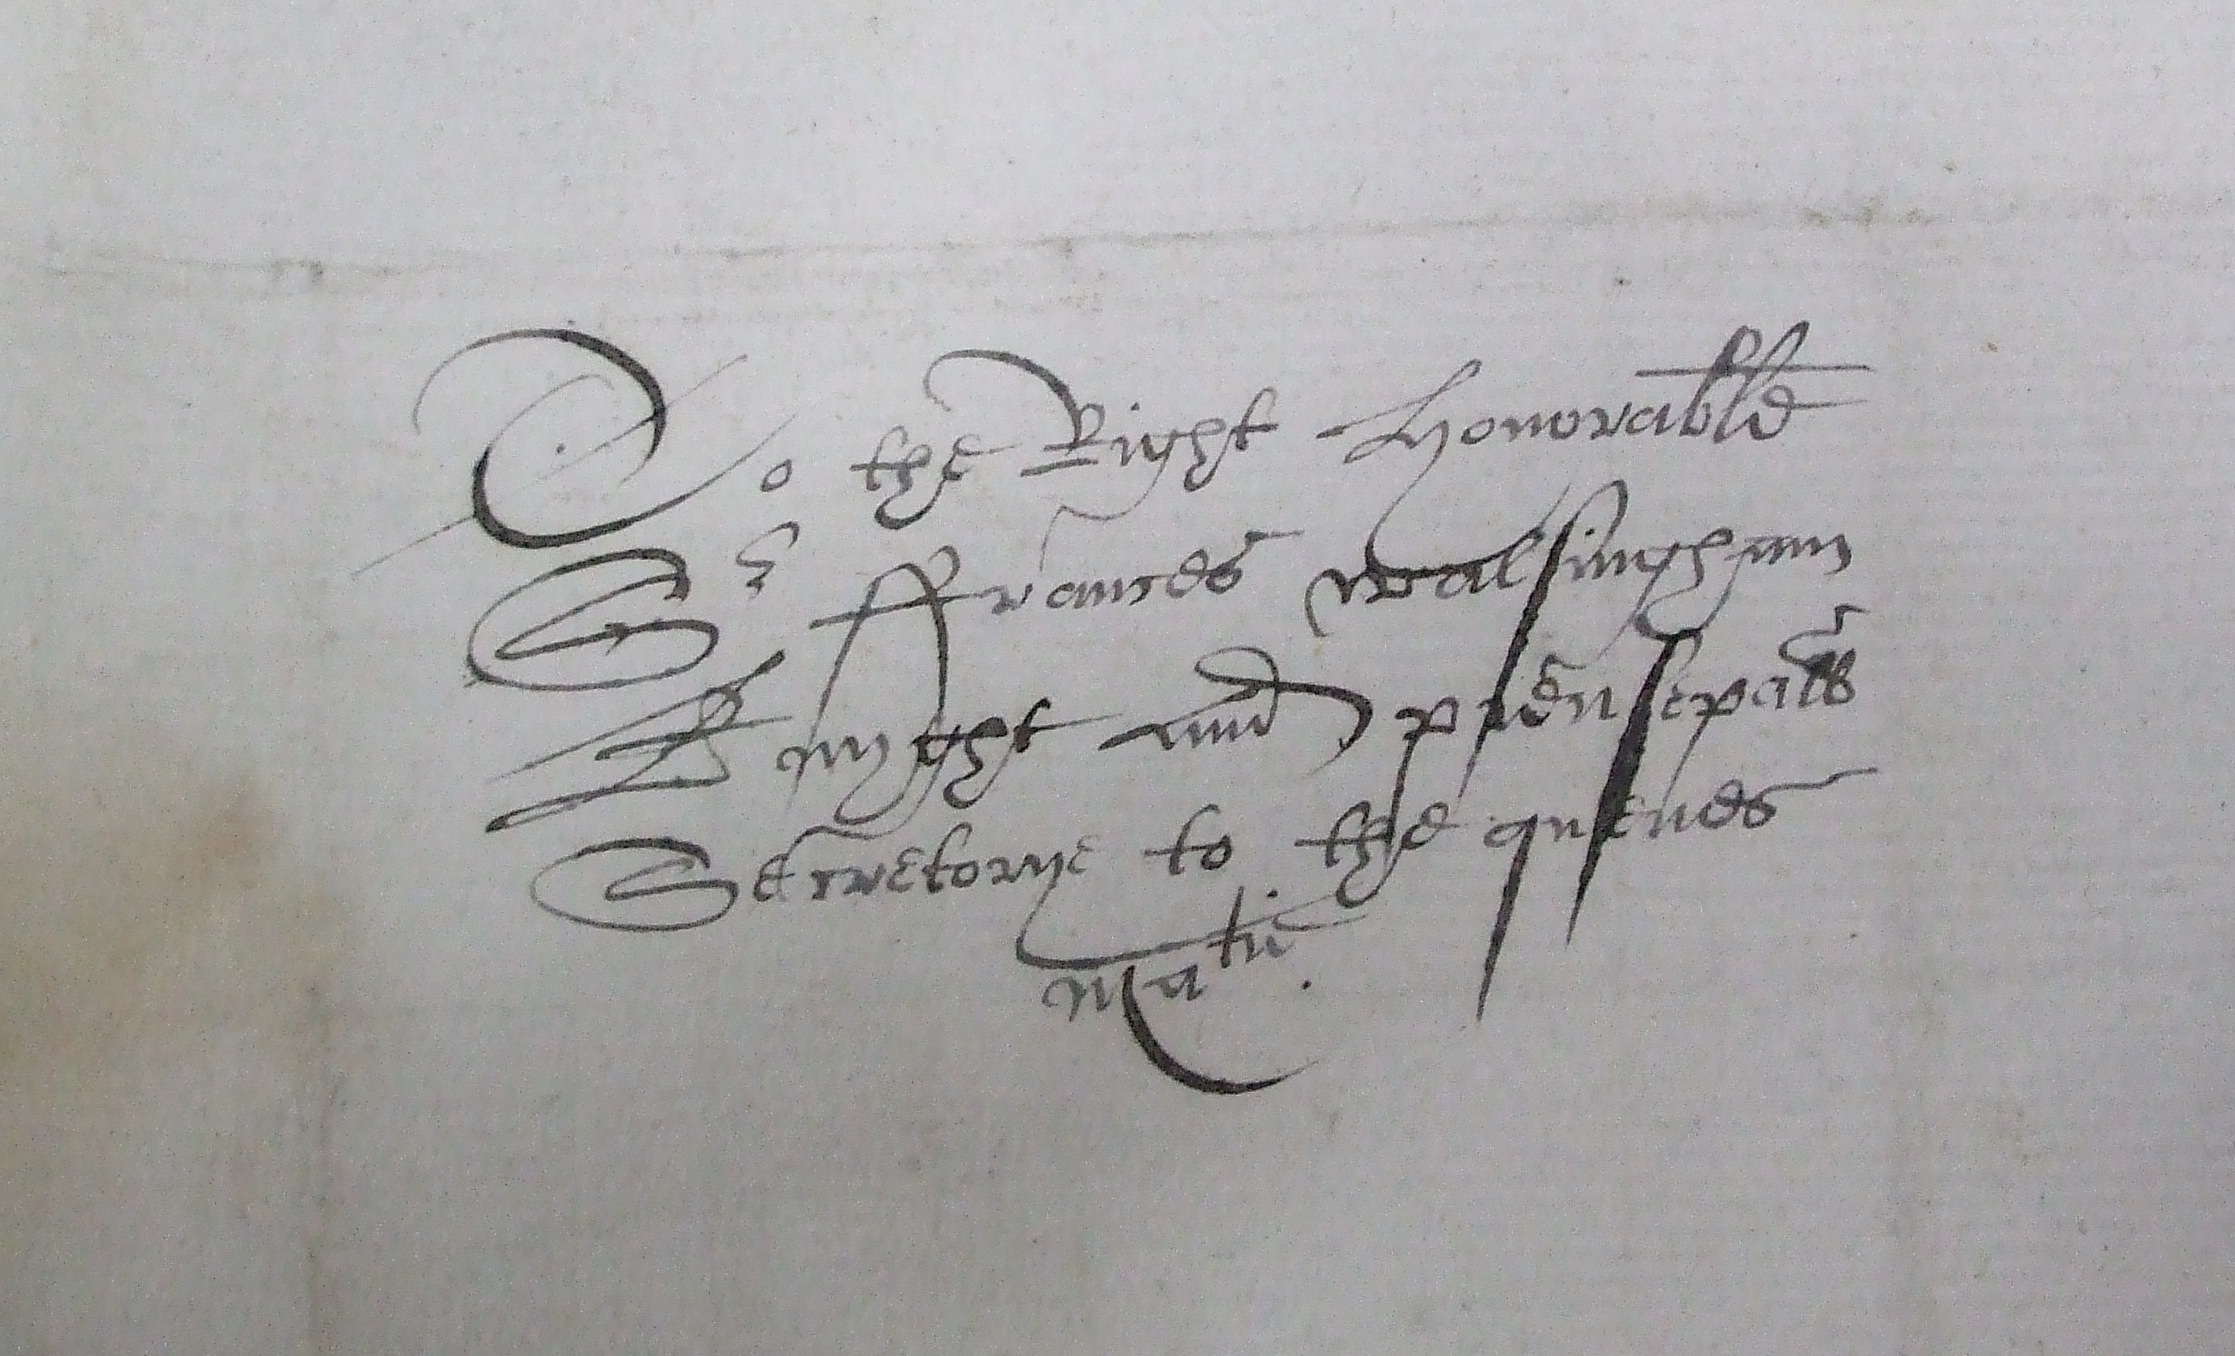 To the Right Honorable
Sr ffrances walsingham
Knyght and prensepall
Secretorye to the quenes
Matie.